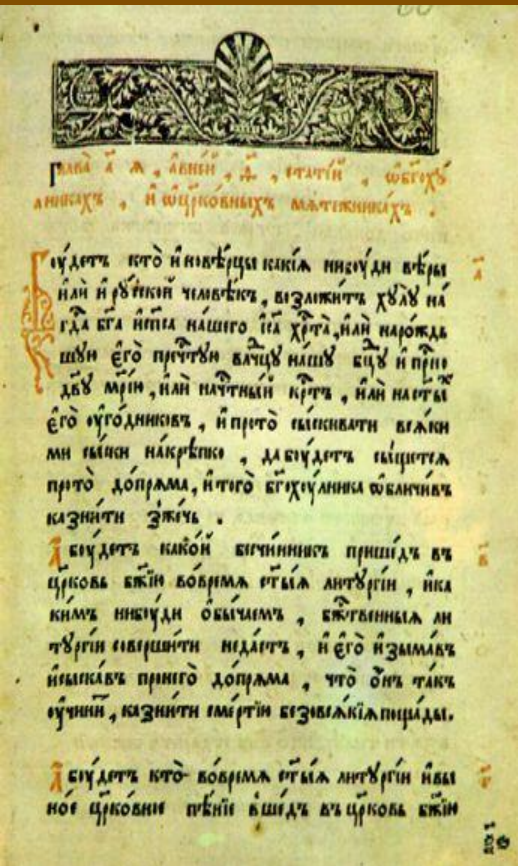 Глава̀ а҃ я , а в не́й , ѳ҃ , стате́й , ѡ бг҃охꙋ́
лникахъ , и҆ ѡ цр҃ко́вныхъ мѧте́жникахъ .
Бꙋ́детъ кто̀ и҆новѣ́рцы какі́ѧ нибꙋ́ди вѣ́ры
и҆лѝ и҆ рꙋ́сской человѣ́къ , возложи́тъ хꙋлꙋ̀ на́
гдⷭ҇а бг҃а и҆ сп҃са на́шего і҆с҃а хрⷭ҇та̀ , и҆лѝ наро́ждь
шꙋю е҆го̀ прⷱ҇тꙋю влⷣчцꙋ на́шꙋ бц҃ꙋ и҆ прⷭ҇но
дв҃ꙋ мр҃і́ю , и҆лѝ на чⷭ҇тны́й крⷭ҇тъ , и҆лѝ на ст҃ы́хъ
е҆го̀ ᲂу҆го́дников , и҆ про то̀ сы́скивати всѧ́ки
ми сы́ски на́крѣпко , да бꙋ́детъ сы́щетсѧ
про то̀ допрѧ́ма , и҆ того̀ бг҃охꙋ́лника ѡ҆бличи́въ
казни́ти зже́чь .
а҃
А҆ бꙋ́детъ како́й безчи́нникъ прише́дъ въ
цр҃ковь бж҃їю во́ времѧ ст҃ы́ѧ литꙋргі́и , и҆ ка
ки́мъ нибꙋ́ди ѻ҆бы́чаемъ , бжⷭ҇твенныѧ ли
тꙋргі́и соверши́ти не да́стъ , и҆ е҆го̀ и҆зыма́въ
и҆ сыска́въ про него̀ допрѧ́ма , что̀ ѻ҆́нъ та́къ
ᲂу҆чини́т , казни́ти сме́ртїю безо всѧ́кїѧ поща́ды .
в҃
А҆ бꙋ́детъ кто̀ во́ времѧ ст҃ы́ѧ литꙋргі́и и҆ в ы
но́е цр҃ко́вное пѣ́нїе вше́дъ въ цр҃ковь бж҃їю
г҃